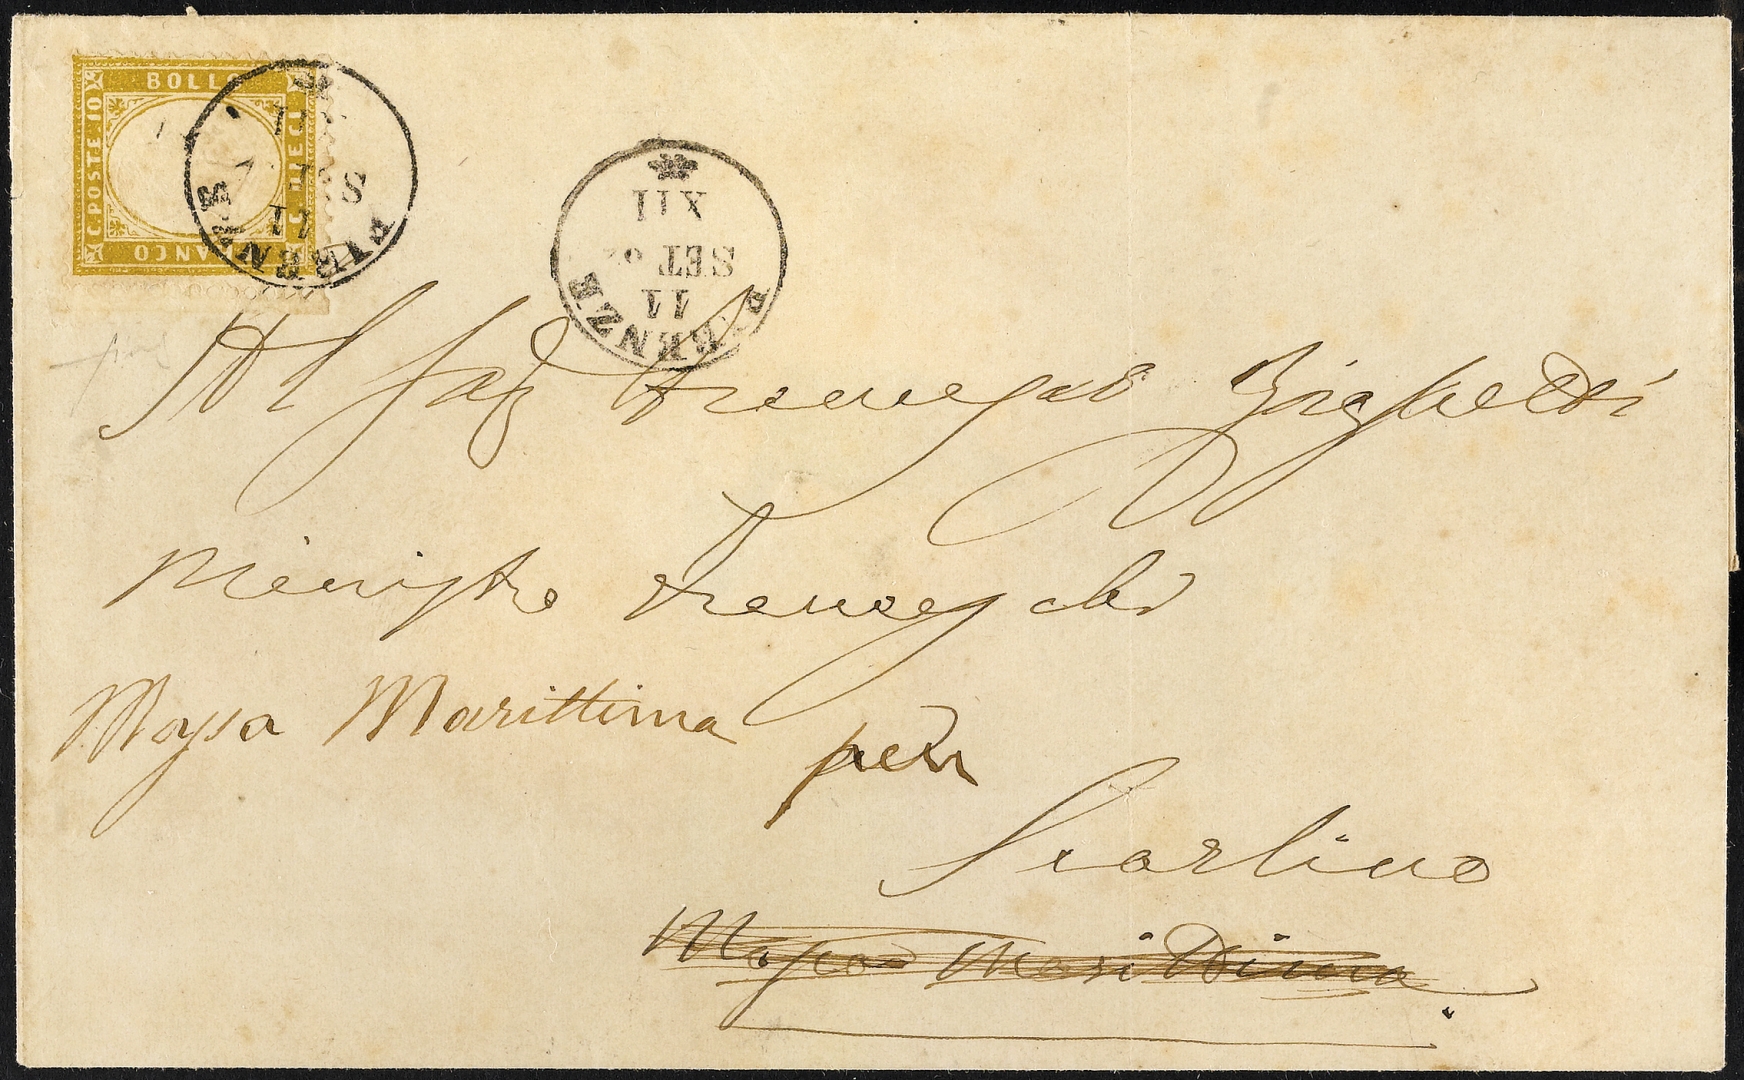 BOLLO
C. POSTE 10
C. DIECI
FRANCO
FIRENZE
11
SET
FIRENZE
11
SET 62
XII
Al Sig Francesco
Ministro Franceschi
Massa Marittima per
Scarlino
Massa Marittima